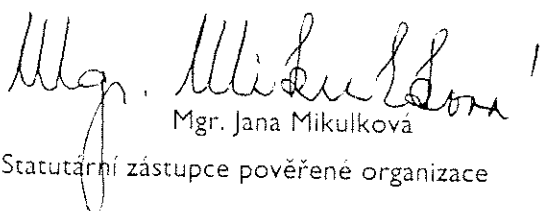 Mgr. Mikulková
Mgr. Jana Mikulková
Statutární zástupce pověřené organizace